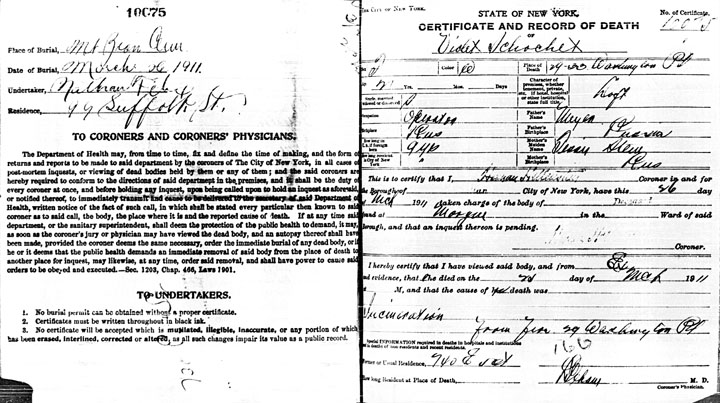 10075
Place of Burial,
Date of Burial, March 26 1911.
Undertaker,
Residence, 79 Suffolk St.
TO CORONERS AND CORONERS' PHYSICIANS.
The Department of Health may, from time to time, fix and define the time of making, and the form of
returns and reports to be made to said department by the coroners of The City of New York, in all cases of
post-mortem inquests, or viewing of dead bodies held by them or any of them; and the said coroners are
hereby required to conform to the directions of said department in the premises, and it shall be the duty
of every coroner at once, and before holding any inquest, upon being called upon to hold an inquest as aforesaid,
or notified thereof, to immediately transmit and cause to be delivered to the secretary of said Department of
Health, written notice of the fact of such call, in which shall be stated every particular then known to said
coroner as to said call, the body, the place where it is and the reported cause of death. If at any time said
department, or the sanitary superintendent, shall deem the protection of the public health to demand, it may,
as soon as the coroner's jury or physician may have viewed the dead body, and an autopsy thereof shall have
been made, provided the coroner deems the same necessary, order the immediate burial of any dead body, or if
he or it deems that the public health demands an immediate removal of said body from the place of death to
another place for inquest, may likewise, at any time, order said removal, and shall have power to cause said
orders to be obeyed and executed.—Sec. 1203, Chap. 466, Laws 1901.
TO UNDERTAKERS.
1. No burial permit can be obtained without a proper certificate.
2. Certificates must be written throughout in black ink.
3. No certificate will be accepted which is mutilated, illegible, inaccurate, or any portion of which
has been erased, interlined, corrected or altered, as all such changes impair its value as a public record.
THE CITY OF NEW YORK.
STATE OF NEW YORK.
No. of Certificate,
CERTIFICATE AND RECORD OF DEATH
10075
OF
Violet Schochet
Color
Place of Death 29-23 Washington Pl
21 Yrs. Mos. Days
Character of premises, whether tenement, private, etc. If hotel, hospital or other institution, state full title. Loft
Single, married, widowed or divorced S
Occupation Operator
Father's Name Meyer
Birthplace Rus
Father's Birthplace Russia
Mother's Maiden Name
Mother's Birthplace Rus
This is to certify that I, Coroner in and for
the Borough of City of New York, have this 26 day
of Mch 1911 taken charge of the body of Deceased
found at Morgue in the Ward of said
Borough, and that an inquest thereon is pending.
Coroner.
I hereby certify that I have viewed said body, and from Ex
and evidence, that he died on the day of Mch 1911
at M, and that the cause of death was
Incineration
from fire 29 Washington Pl
Special INFORMATION required in deaths in hospitals and institutions
and in deaths of non-residents and recent residents.
166
Former or Usual Residence, 740 E
How long Resident at Place of Death, M. D.
Coroner's Physician.